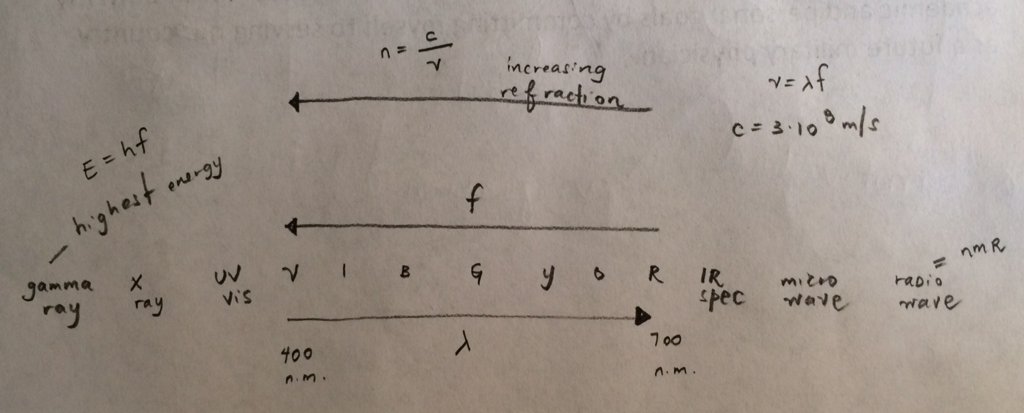 n = c/v
increasing
refraction
v = λf
c = 3·10⁸ m/s
E = hf
highest energy
f
gamma ray
X ray
UV vis
V I B G Y O R
IR spec
micro wave
radio wave = nmR
λ
400 n.m.
700 n.m.